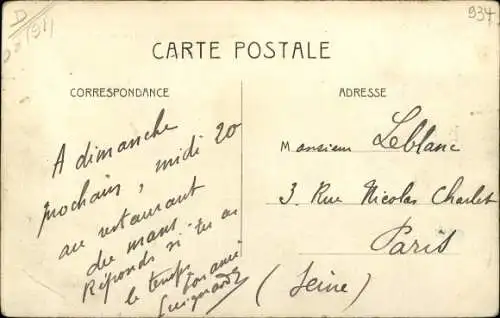 D
(91)
934
CARTE POSTALE
CORRESPONDANCE
ADRESSE
A dimanche
prochain, midi 20
au restaurant
du mans
Réponds si tu as
le temps
Ton ami
Monsieur Leblanc
3, Rue Nicolas Charlet
Paris
(Seine)